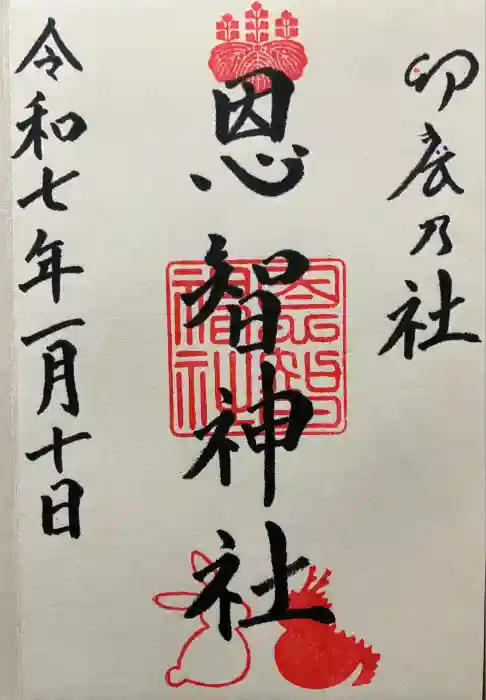 卯辰乃社
恩智神社
令和七年一月十日
恩智神社